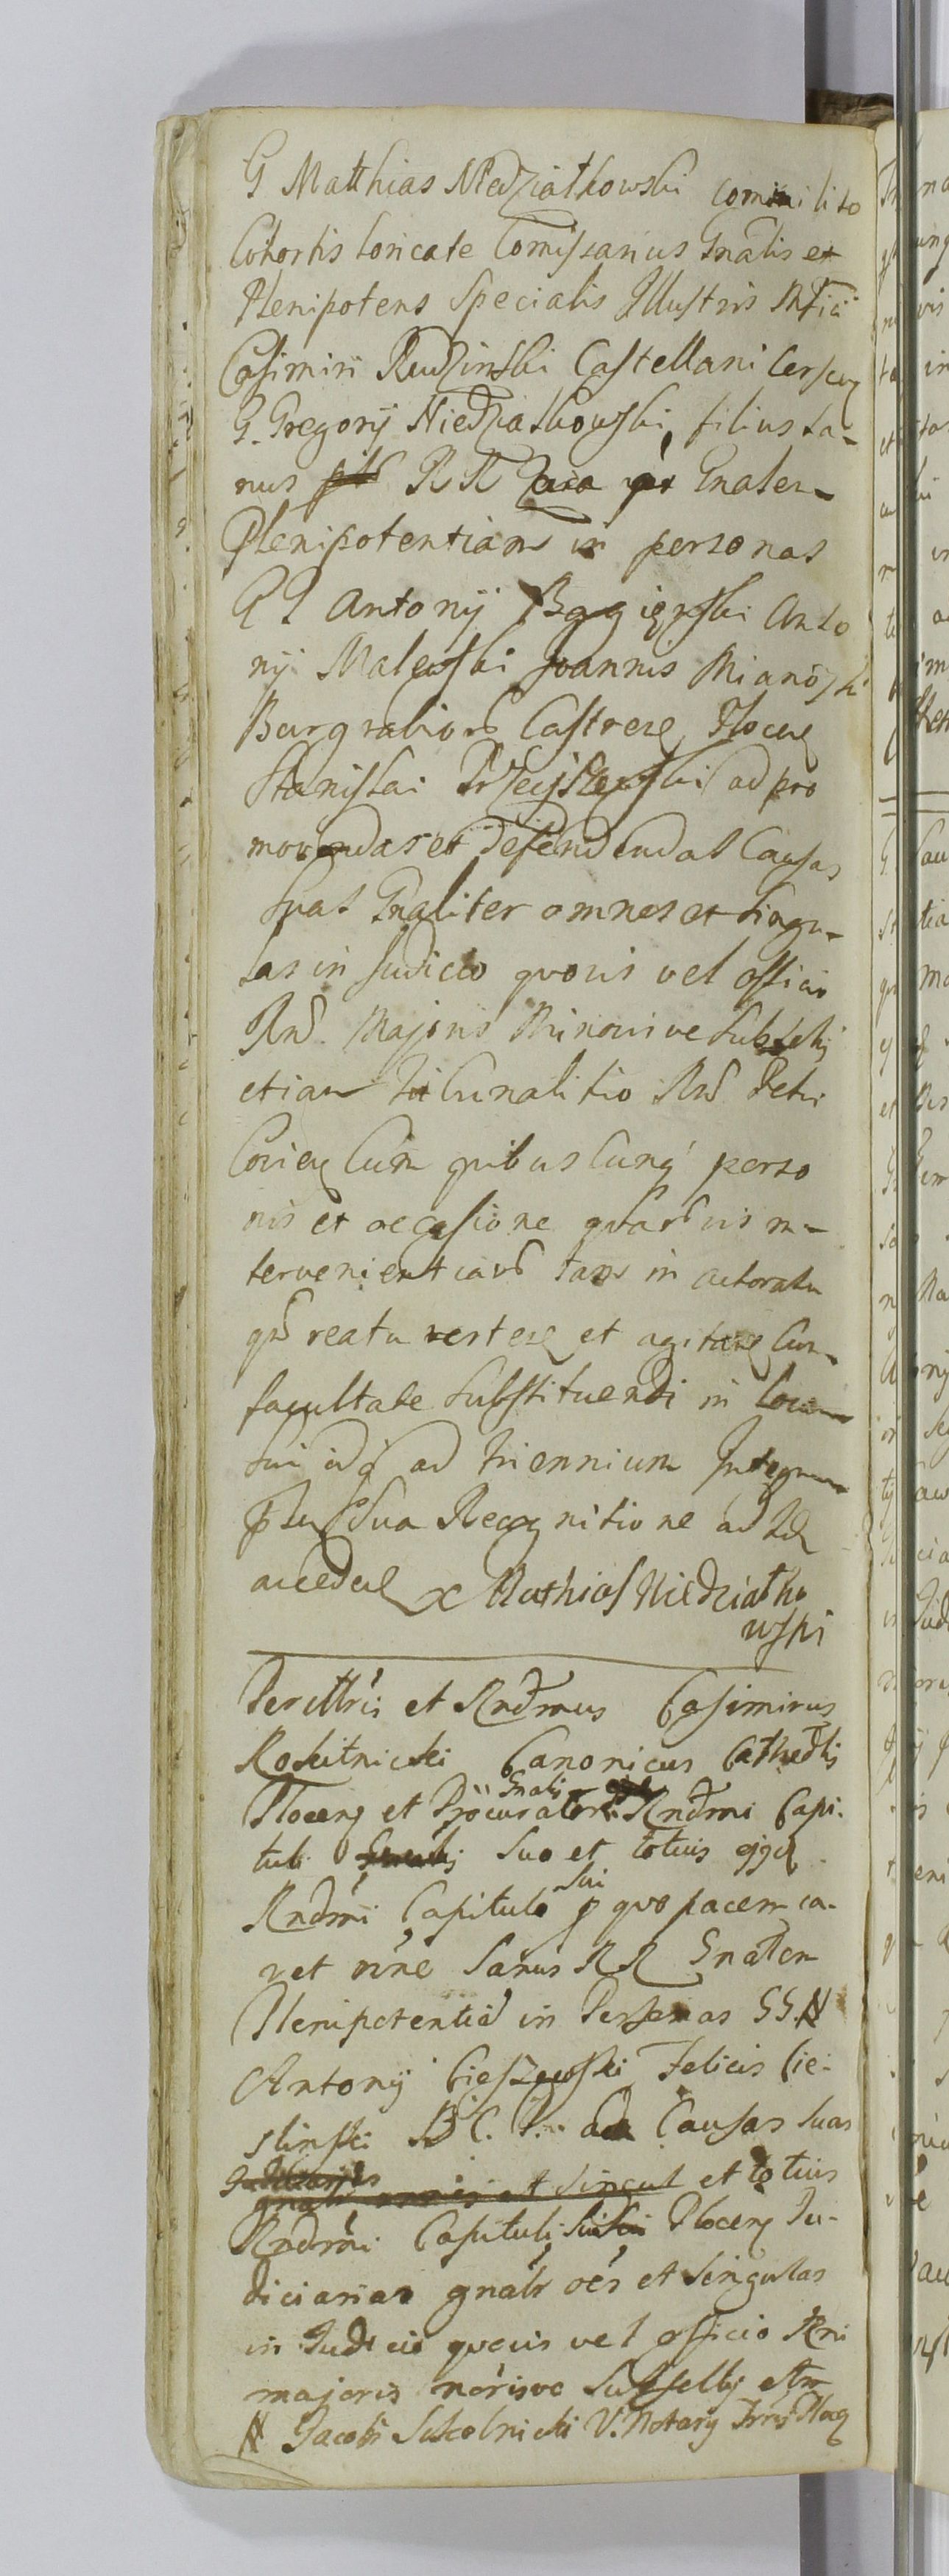 G Matthias Niedziałkowski comilito
Cohortis loricate Comissarius Gnalis et
Plenipotens Specialis Illustris Mfici
Casimiri Rudzinski Castellani Cerscen
G. Gregorij Niedziałkowski, filius sa-
nus RR Gnalem
Plenipotentiam in personas
G G Antonij Bagienski Anto
nij Malewski Joannis Mianowski
Burgrabiorū Castrens Plocen
Stanislai Przeciszewski ad pro
movendas et defendendas Causas
suas Gnaliter omnes et singu-
las in Judicio quovis vel officio
Rnd. Majoris Minorisve Subselij
etiam Tribunalitio Rnd Petri
Covien Cum quibuscunq perso
nis et occasione quarūvis in-
tervenientiarū tam in actoratu
qm reatu vertere et agitare Cum
facultate substituendi in locum
sui idq ad triennium Integrum
sua Recognitione ad id
accedere x Mathias Niedziatko
wski
Perillris et Rndmus Casimirus
Rokitnicki Canonicus Cathedlis
Plocens et Procurator Gnalis Rndmi Capi-
tuli suo et totius ejgd
Rndmi Capituli sui p quo pacem ca-
vet nine sanus RR Gnalem
Plenipotentiā in Personas GG. N
Antonij Cieszewski Felicis Cie-
slinski B C. P. ad Causas suas
gnalr omnes et singul et totius
Rndmi Capituli Plocens Ju-
diciarias gnalr oes et singulas
in Judicio quovis vel officio Rni
majoris norisve Subsellij etm
N Jacobi Sokolnicki V. Notarij Trris Plocen